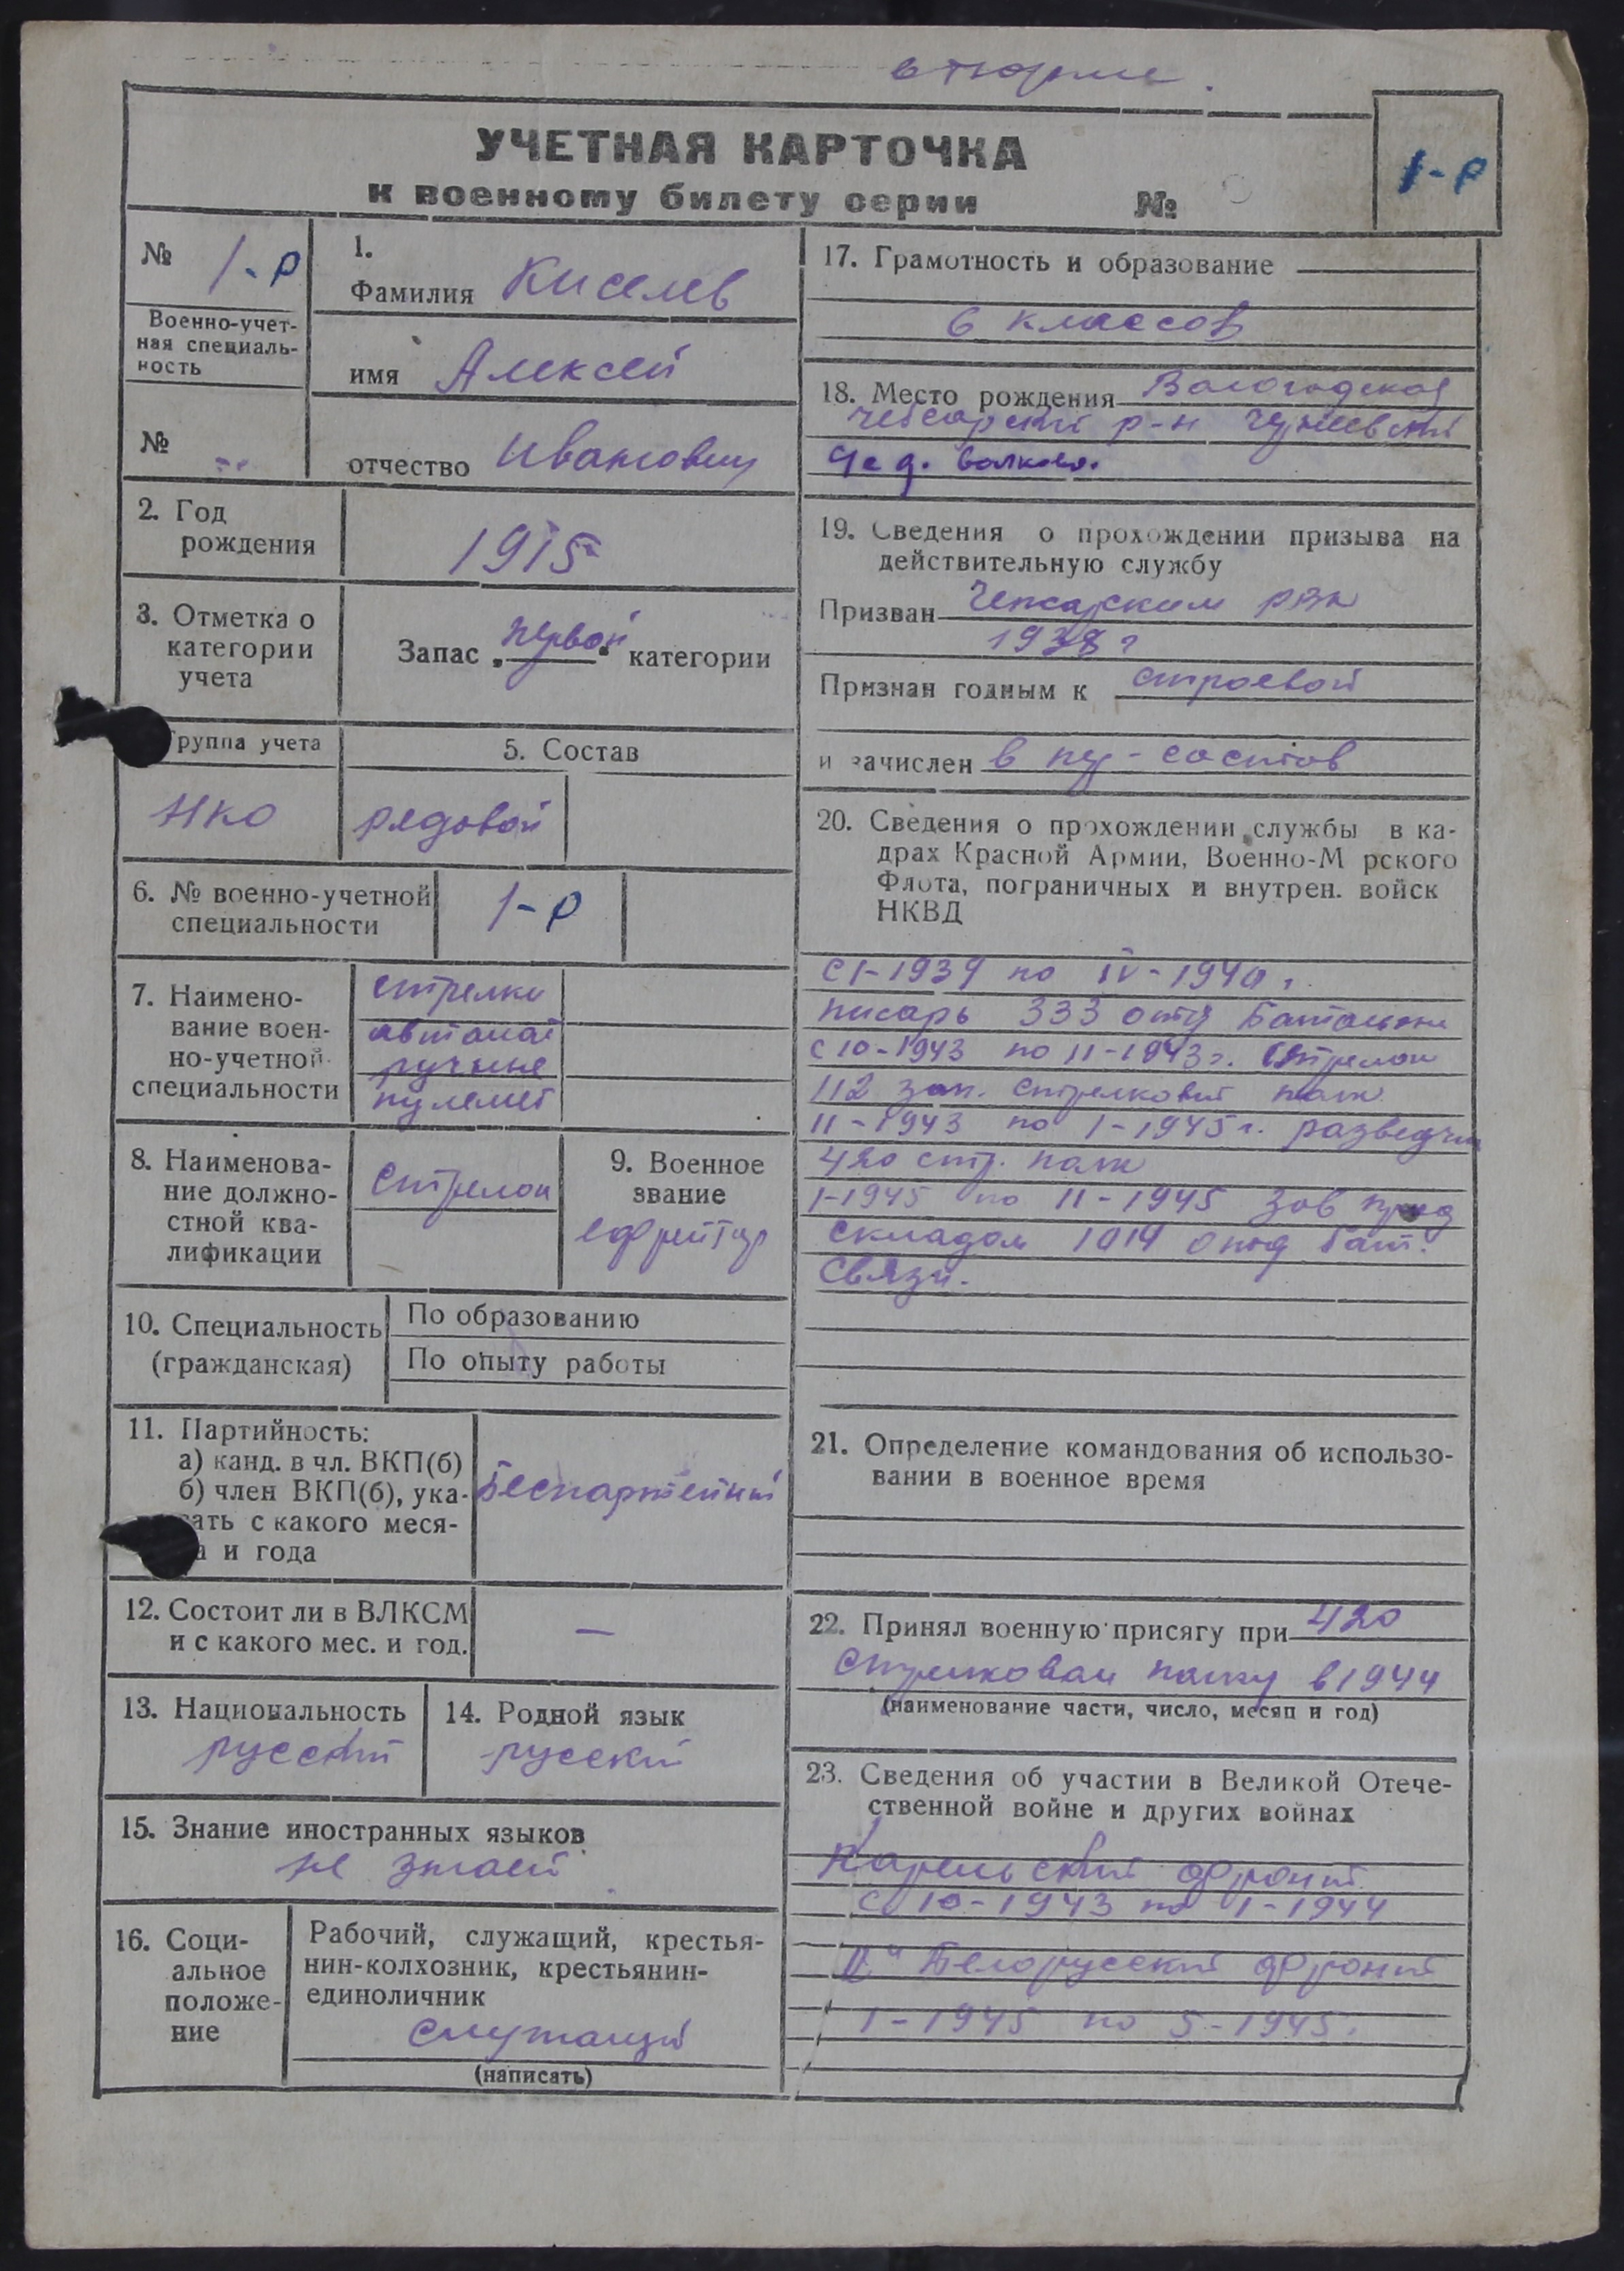 в тюрьме.
УЧЕТНАЯ КАРТОЧКА
к военному билету серии №
1-р
№ 1-р
Военно-учет-
ная специаль-
ность
№
1.
Фамилия Киселев
имя Алексей
отчество Иванович
2. Год
рождения
1915
3. Отметка о
категории
учета
Запас „первой“ категории
Группа учета
НКО
5. Состав
рядовой
6. № военно-учетной
специальности
1-р
7. Наимено-
вание воен-
но-учетной
специальности
стрелки
автомат
ручные
пулемет
8. Наименова-
ние должно-
стной ква-
лификации
стрелок
9. Военное
звание
ефрейтор
10. Специальность
(гражданская)
По образованию
По опыту работы
11. Партийность:
а) канд. в чл. ВКП(б)
б) член ВКП(б), ука-
зать с какого меся-
а и года
Беспартейный
12. Состоит ли в ВЛКСМ
и с какого мес. и год.
—
13. Национальность
русский
14. Родной язык
русский
15. Знание иностранных языков
не знает
16. Соци-
альное
положе-
ние
Рабочий, служащий, крестья-
нин-колхозник, крестьянин-
единоличник
служащий
(написать)
17. Грамотность и образование
6 классов
18. Место рождения Вологодская
Чебсарский р-н
д. Волково.
19. Сведения о прохождении призыва на
действительную службу
Призван Чепсарским РВК
1938 г
Признан годным к строевой
и зачислен в ряд-состав
20. Сведения о прохождении службы в ка-
драх Красной Армии, Военно-М рского
Флота, пограничных и внутрен. войск
НКВД
с I-1939 по IV-1940 г.
писарь 333 отд Батальон
с 10-1943 по 11-1943 г. Стрелок
112 зап. стрелковый полк
11-1943 по 1-1945 г. разведчик
420 стр. полк
1-1945 по 11-1945 Зав прод
складом 1014 отд бат.
связи.
21. Определение командования об использо-
вании в военное время
22. Принял военную присягу при 420
стрелковом полку в 1944
(наименование части, число, месяц и год)
23. Сведения об участии в Великой Отече-
ственной войне и других войнах
Карельский фронт
с 10-1943 по 1-1944
IIй Белорусский фронт
1-1945 по 5-1945.